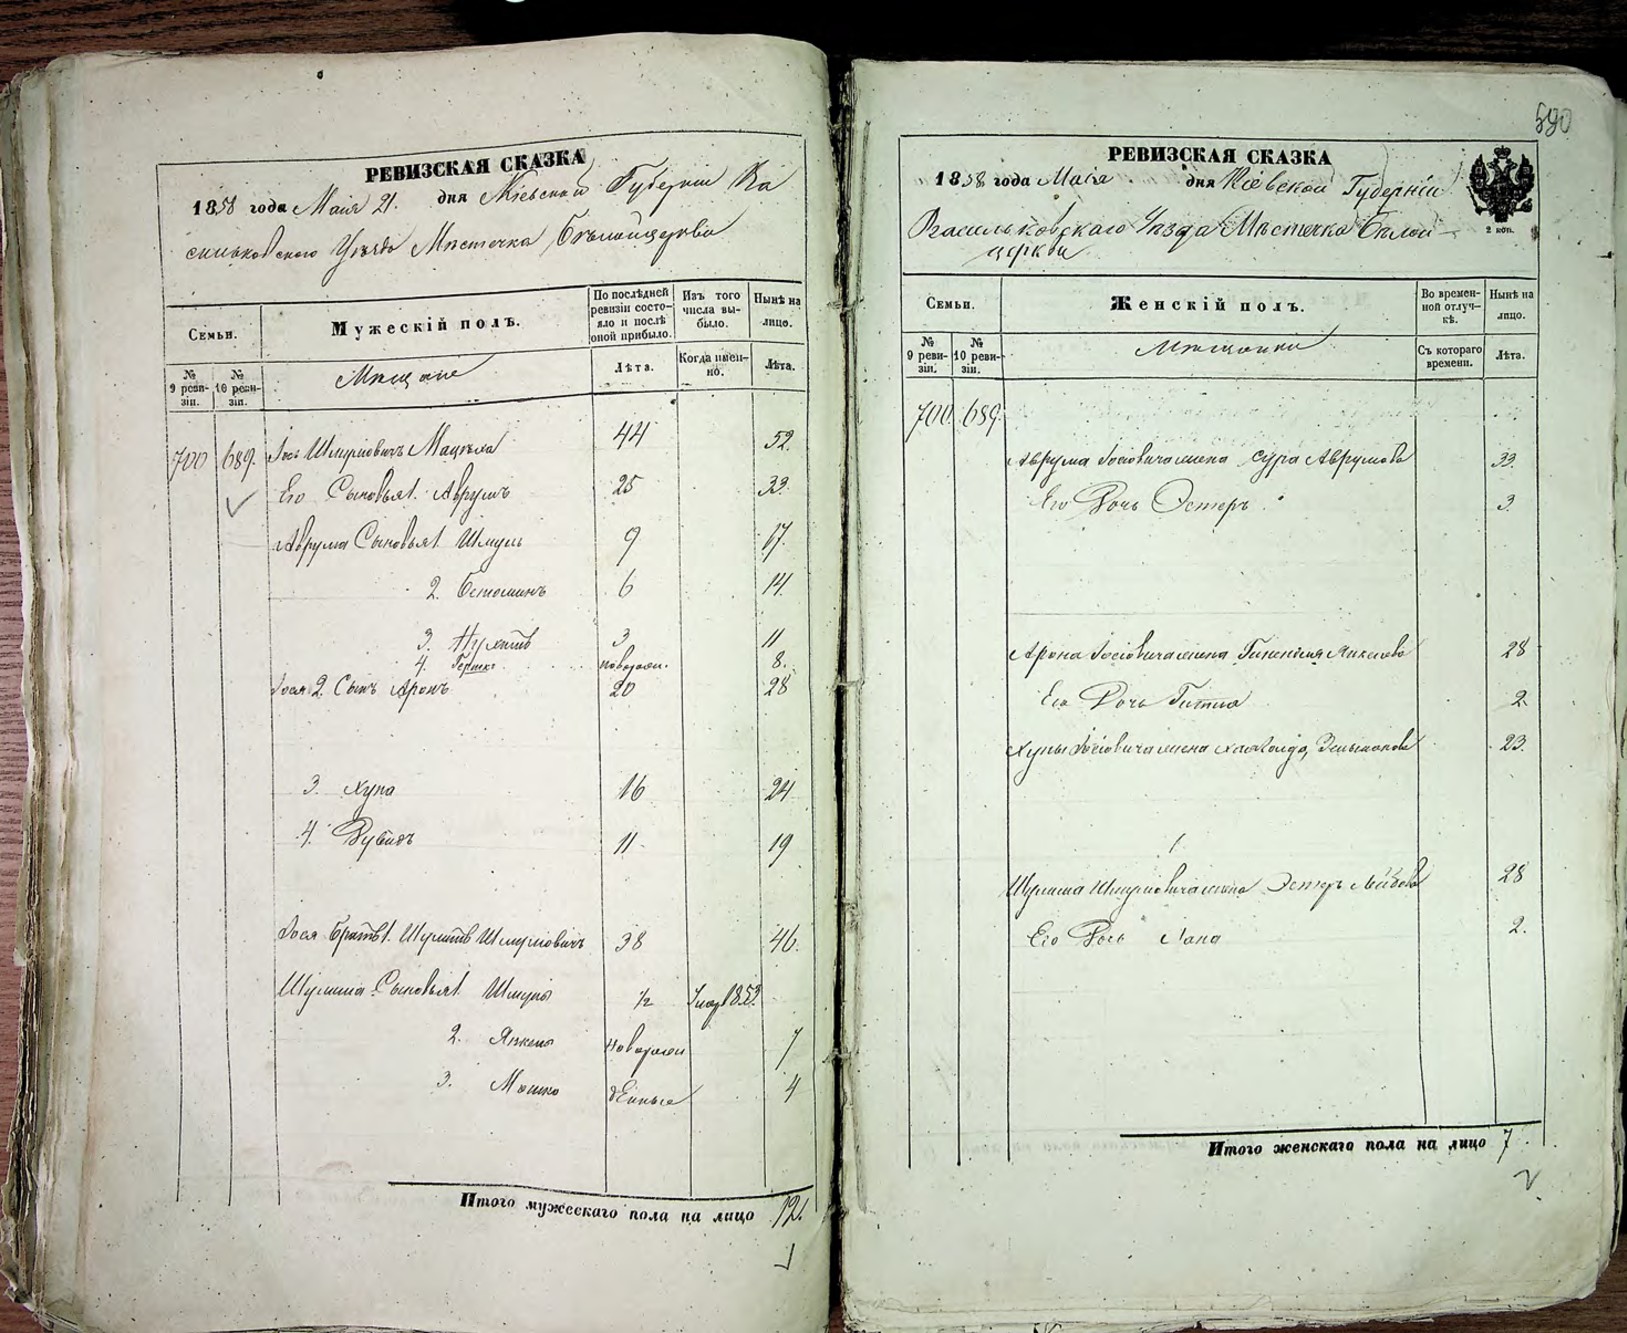 РЕВИЗСКАЯ СКАЗКА
1858 года Мая 21. дня Кіевской Губерніи Ва
сильковского Уезда Местечка Белойцеркви
Семьи.
№ 9 ревизіи.
№ 10 ревизіи.
Мужескій полъ.
Мещане
По послѣдней ревизіи состояло и послѣ оной прибыло.
Лѣта.
Изъ того числа выбыло.
Когда именно.
Нынѣ на лицо.
Лѣта.
700 689. Іось Шмулiовичъ 44 52
Его Сыновья 1. Аврумъ 25 33
Аврума Сыновья 1 Шмуль 9 17
2. 6 14
3. 3 11
4. Гершко новорож. 8.
Іося 2. Сынъ Аронъ 20 28
3. Хуна 16 24
4. Рувинъ 11 19
Іося братъ 1. Шулимъ Шмулiовичъ 38 46.
Шулима Сыновья 1 Шмуль ½
2. Янкель новорож 7
3. Мошко денные 4
Итого мужескаго пола на лицо 12.
590
РЕВИЗСКАЯ СКАЗКА
1858 года Мая дня Кіевской Губерніи
2 коп.
Васильковскаго Уезда Местечка Белой
церкви
Семьи.
№ 9 ревизіи.
№ 10 ревизіи.
Женскій полъ.
Мещанки
Во временной отлучкѣ.
Съ котораго времени.
Нынѣ на лицо.
Лѣта.
700. 689.
Аврума Іосіовича жена Сура Аврумова 33
Его Дочь Эстеръ 3
Арона Іосіовича жена Янкелева 28
Его Дочь Гитля 2
Хуны Іосіовича жена 23.
Шулима Шмулiовича жена Эстеръ Лейбова 28
Его Дочь Хана 2.
Итого женскаго пола на лицо 7